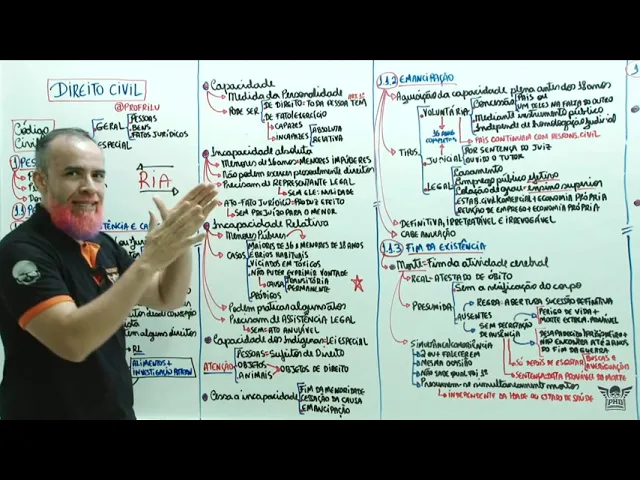 DIREITO CIVIL
@PROFRILU
Código
Civil
GERAL
PESSOAS
BENS
FATOS JURÍDICOS
ESPECIAL
RIA
RL
ALIMENTOS+
Capacidade
Medida da Personalidade
PODE SER
DE DIREITO: TODA PESSOA TEM
DE FATO/EXERCÍCIO
CAPAZES
INCAPAZES
ABSOLUTA
RELATIVA
Incapacidade absoluta
Menores de 16 anos: MENORES IMPÚBERES
Não podem exercer pessoalmente direitos
Precisam de REPRESENTANTE LEGAL
SEM ELE: NULIDADE
ATO-FATO JURÍDICO: PRODUZ EFEITO
SEM PREJUÍZO PARA O MENOR
Incapacidade Relativa
Menores Púberes
CASOS
MAIORES DE 16 A MENORES DE 18 ANOS
ÉBRIOS HABITUAIS
VICIADOS EM TÓXICOS
NÃO PUDER EXPRIMIR VONTADE
CAUSA
TRANSITÓRIA
PERMANENTE
PRÓDIGOS
Podem praticar alguns atos
Precisam de ASSISTÊNCIA LEGAL
SEM: ATO ANULÁVEL
Capacidade dos Indígenas: Lei especial
ATENÇÃO
PESSOAS: Sujeitos de Direito
OBJETOS
ANIMAIS
OBJETOS DE DIREITO
Cessa a incapacidade
FIM DA MENORIDADE
CESSAÇÃO DA CAUSA
EMANCIPAÇÃO
1.1.2 EMANCIPAÇÃO
Aquisição da capacidade plena antes dos 18 anos
TIPOS
VOLUNTÁRIA
16 ANOS
COMPLETOS
Concessão
PAIS OU
UM DELES NA FALTA DO OUTRO
Mediante instrumento público
Independe de homologação judicial
PAIS CONTINUAM COM RESPONS. CIVIL
JUDICIAL
POR SENTENÇA DO JUIZ
OUVIDO O TUTOR
LEGAL
Casamento
Emprego público efetivo
Colação de grau: ensino superior
ESTAB. CIVIL/COMERCIAL + ECONOMIA PRÓPRIA
RELAÇÃO DE EMPREGO + ECONOMIA PRÓPRIA
DEFINITIVA, IRRETRATÁVEL E IRREVOGÁVEL
CABE ANULAÇÃO
1.1.3 FIM DA EXISTÊNCIA
Morte = Fim da atividade cerebral
REAL - ATESTADO DE ÓBITO
PRESUMIDA
Sem a verificação do corpo
AUSENTES
REGRA: ABERTURA SUCESSÃO DEFINITIVA
SEM DECRETAÇÃO
DE AUSÊNCIA
PERIGO DE VIDA +
MORTE EXTREM. PROVÁVEL
DESAPARECIDO/PRISIONEIRO +
NÃO ENCONTRA ATÉ 2 ANOS
DO FIM DA GUERRA
SÓ DEPOIS DE ESGOTAR
BUSCAS E
AVERIGUAÇÕES
SENTENÇA: DATA PROVÁVEL DA MORTE
SIMULTÂNEA/COMORIÊNCIA
2 OU + FALECEREM
MESMA OCASIÃO
NÃO SABE QUAL FOI 1º
Presumem-se simultaneamente mortos
INDEPENDENTE DA IDADE OU ESTADO DE SAÚDE
PHB